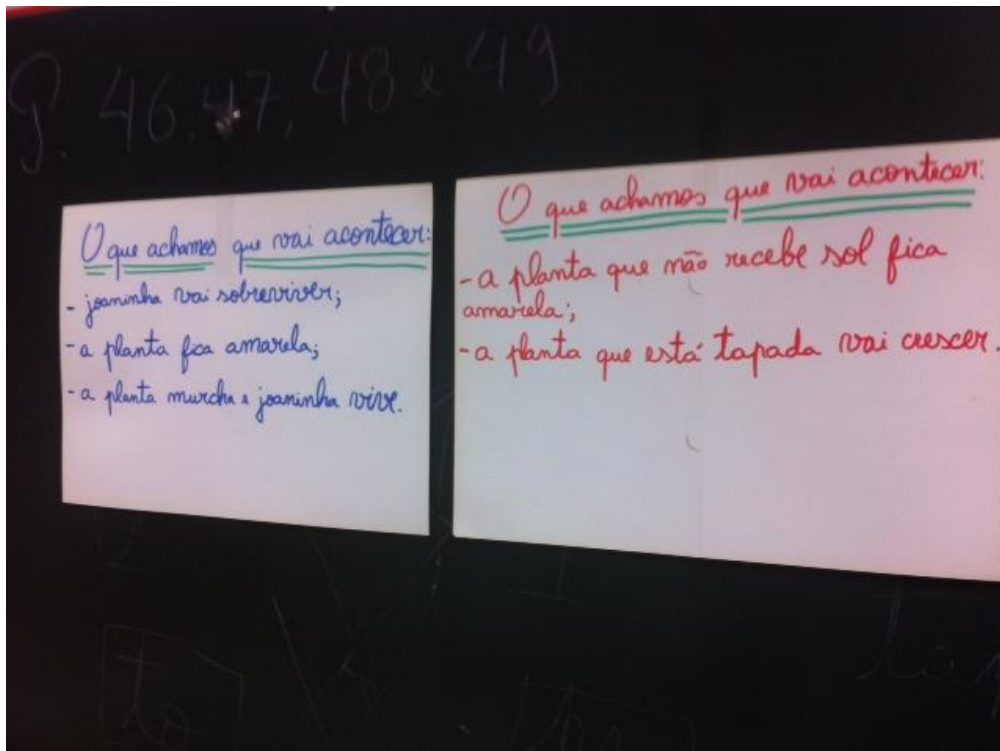 P. 46, 47, 48 e 49
O que achamos que vai acontecer:
- joaninha vai sobreviver;
- a planta fica amarela;
- a planta murcha e joaninha vive.
O que achamos que vai acontecer:
- a planta que não recebe sol fica
amarela;
- a planta que está tapada vai crescer.